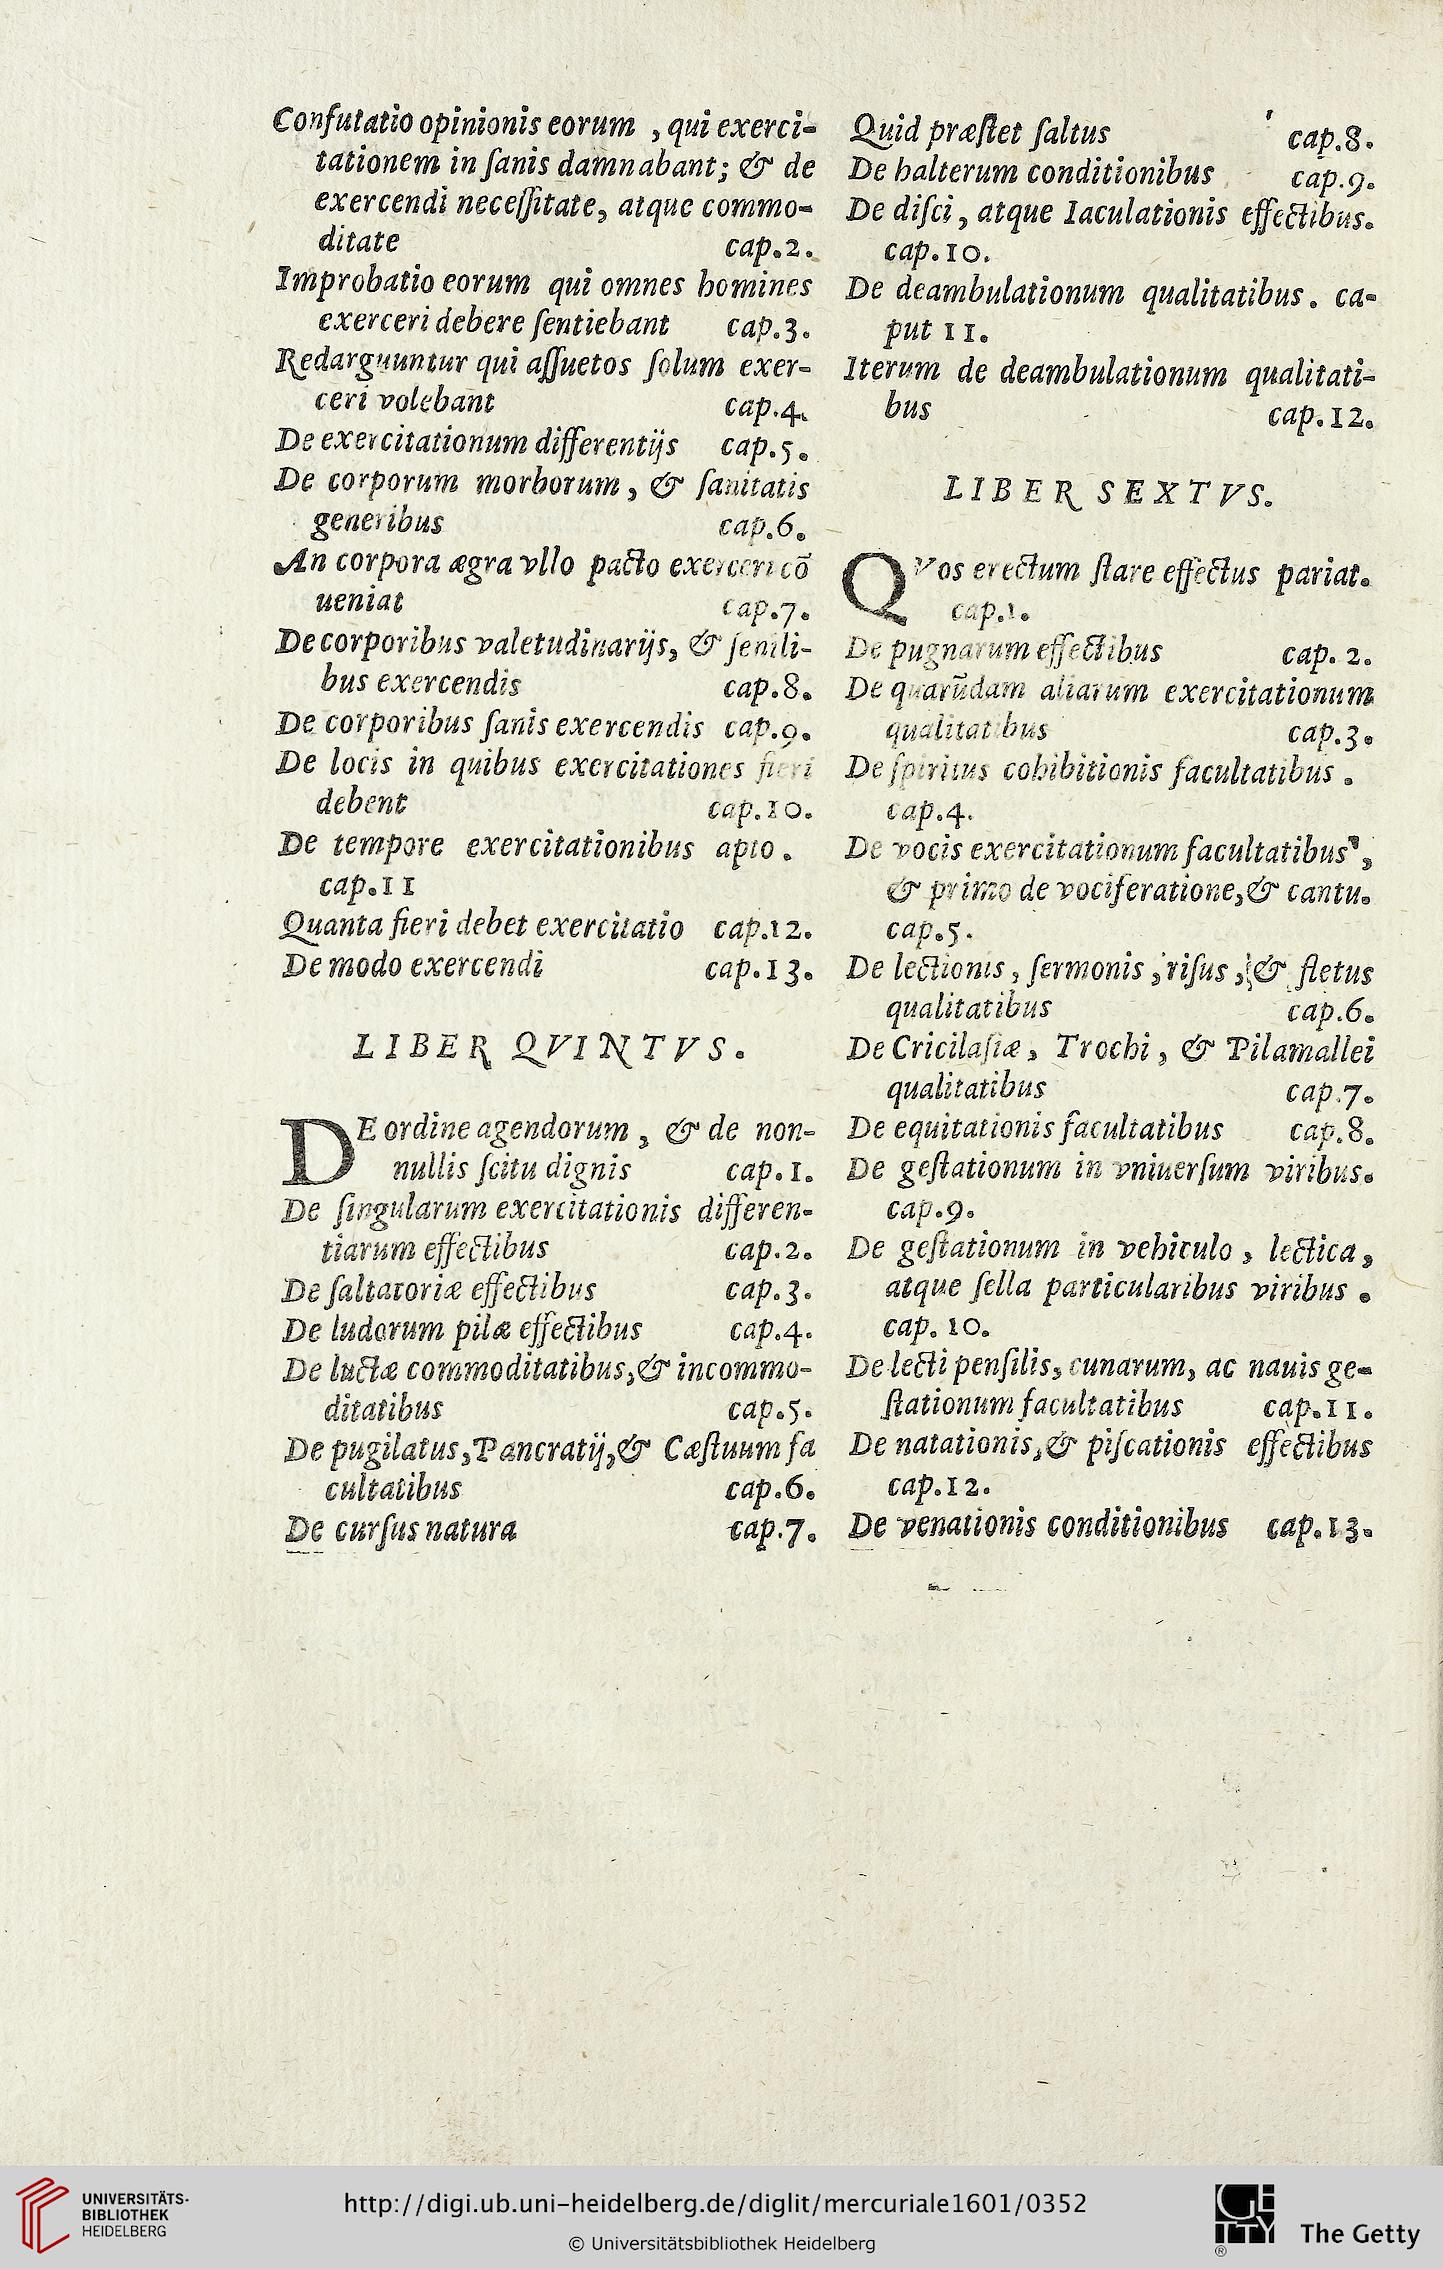 Confutatio opinionis eorum , qui exerci-
tationem in ſanis damnabant; & de
exercendi neceſſitate, atque commo-
ditate cap.2.
Improbatio eorum qui omnes homines
exerceri debere ſentiebant cap.3.
Redarguuntur qui aſſuetos ſolum exer-
ceri volebant cap.4.
De exercitationum differentijs cap.5.
De corporum morborum, & ſanitatis
generibus cap.6.
An corpora ægra vllo pacto exerceri cō
ueniat cap.7.
De corporibus valetudinarijs, & ſenili-
bus exercendis cap.8.
De corporibus ſanis exercendis cap.9.
De locis in quibus exercitationes fieri
debent cap.10.
De tempore exercitationibus apto .
cap.11
Quanta fieri debet exercitatio cap.12.
De modo exercendi cap.13.
LIBER QVINTVS.
DE ordine agendorum , & de non-
nullis ſcitu dignis cap.1.
De ſingularum exercitationis differen-
tiarum effectibus cap.2.
De ſaltatoriæ effectibus cap.3.
De ludorum pilæ effectibus cap.4.
De luctæ commoditatibus,& incommo-
ditatibus cap.5.
De pugilatus,Pancratij,& Cæſtuum fa
cultatibus cap.6.
De curſus natura cap.7.
Quid præſtet ſaltus cap.8.
De halterum conditionibus cap.9.
De diſci, atque Iaculationis effectibus.
cap.10.
De deambulationum qualitatibus. ca-
put 11.
Iterum de deambulationum qualitati-
bus cap.12.
LIBER SEXTVS.
QVos erectum ſtare effectus pariat.
cap.1.
De pugnarum effectibus cap. 2.
De quarūdam aliarum exercitationum
qualitatibus cap.3.
De ſpiritus cohibitionis facultatibus .
cap.4.
De vocis exercitationum facultatibus,
& primo de vociferatione,& cantu.
cap.5.
De lectionis, ſermonis, riſus, & fletus
qualitatibus cap.6.
De Cricilaſiæ, Trochi, & Pilamallei
qualitatibus cap.7.
De equitationis facultatibus cap.8.
De geſtationum in vniuerſum viribus.
cap.9.
De geſtationum in vehiculo , lectica,
atque ſella particularibus viribus .
cap. 10.
De lecti penſilis, cunarum, ac nauis ge-
ſtationum facultatibus cap.11.
De natationis,& piſcationis effectibus
cap.12.
De venationis conditionibus cap.13.
UNIVERSITÄTS-
BIBLIOTHEK
HEIDELBERG
http://digi.ub.uni-heidelberg.de/diglit/mercuriale1601/0352
© Universitätsbibliothek Heidelberg
GETTY
®
The Getty